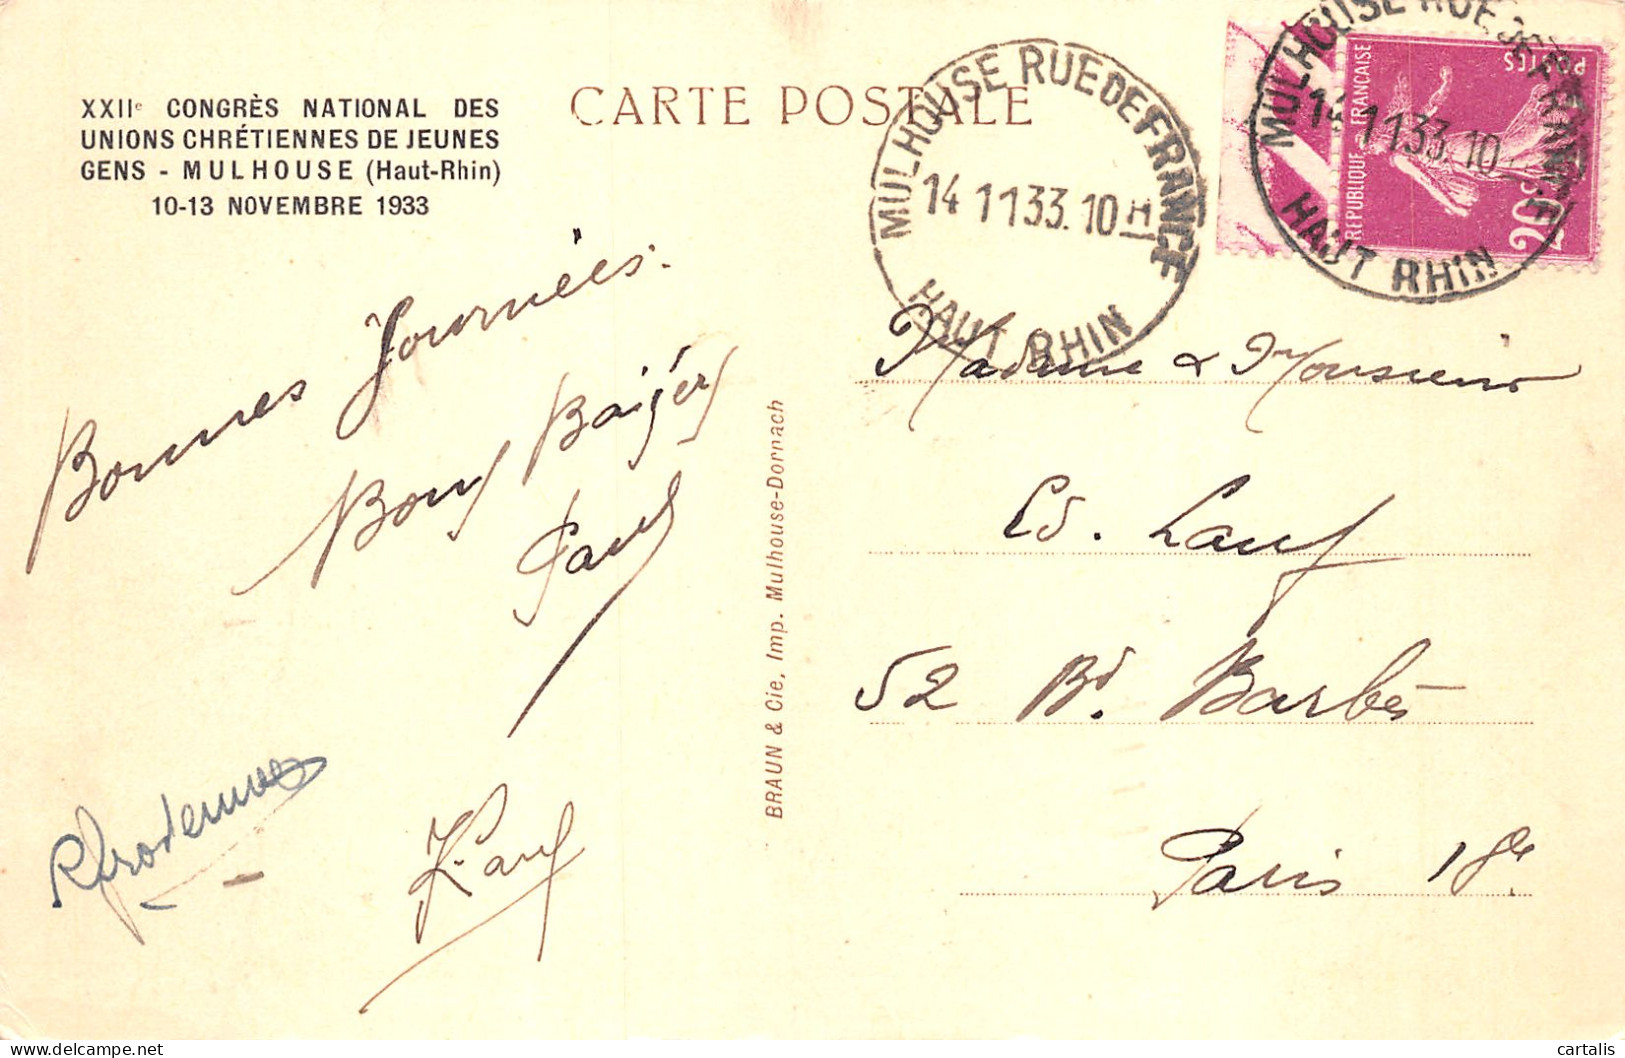 XXIIe CONGRÈS NATIONAL DES
UNIONS CHRÉTIENNES DE JEUNES
GENS - MULHOUSE (Haut-Rhin)
10-13 NOVEMBRE 1933
CARTE POSTALE
MULHOUSE RUE DE FRANCE
14 11 33. 10 H
HAUT RHIN
MULHOUSE RUE DE FRANCE
14 11 33. 10
HAUT RHIN
REPUBLIQUE FRANÇAISE
POSTES
20c
Bonnes Journées.
Bons Baisers
Paul
BRAUN & Cie, Imp. Mulhouse-Dornach
Madame & Monsieur
Ed.
52 Bd. Barbès
Paris 18e
cartalis